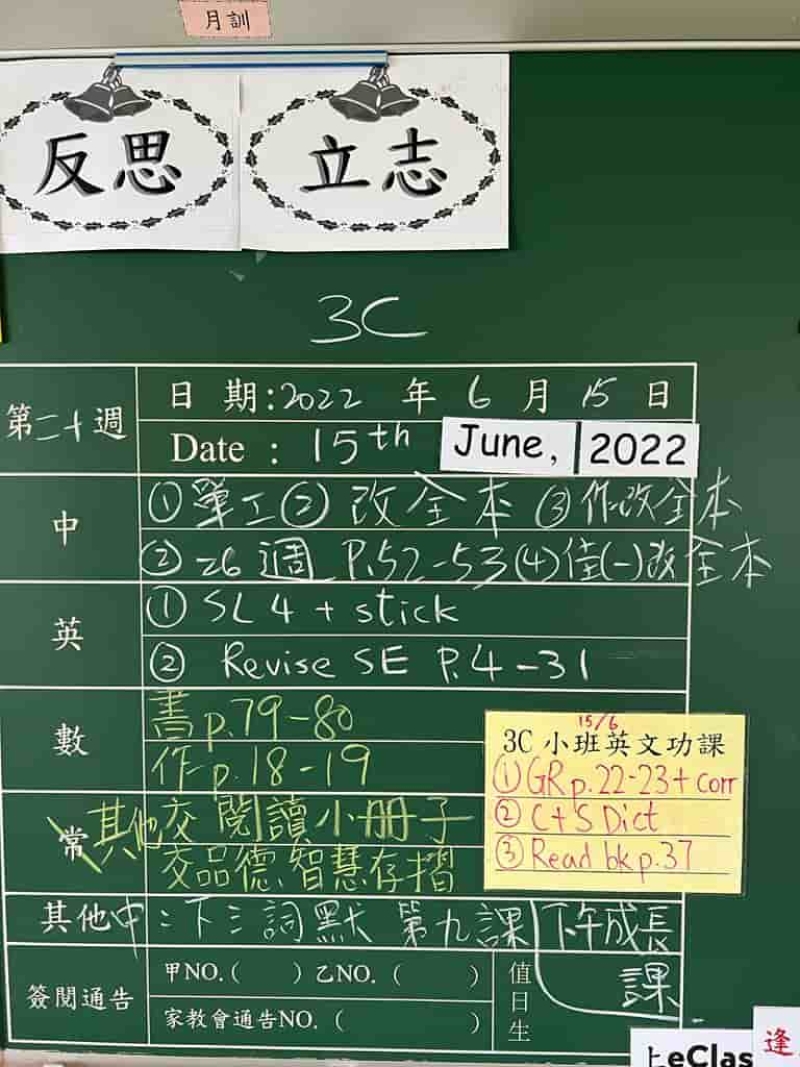 月訓
反思 立志
3C
第二十週
日期:2022 年 6 月 15 日
Date : 15th June, 2022
中
①單工② 改全本 ③作改全本
② 26 週 P.52-53(4)佳(一)改全本
英
① SL 4 + stick
② Revise SE P.4-31
數
書p.79-80
作p.18-19
常 其他
交 閱讀小冊子
交品德、智慧存摺
15/6
3C 小班英文功課
①GR p.22-23+ corr
② C+S Dict
③ Read bk p.37
其他 中：下三詞默 第九課 下午成長課
簽閱通告
甲NO.( ) 乙NO. ( )
家教會通告NO. ( )
值日生
上eClas
逢